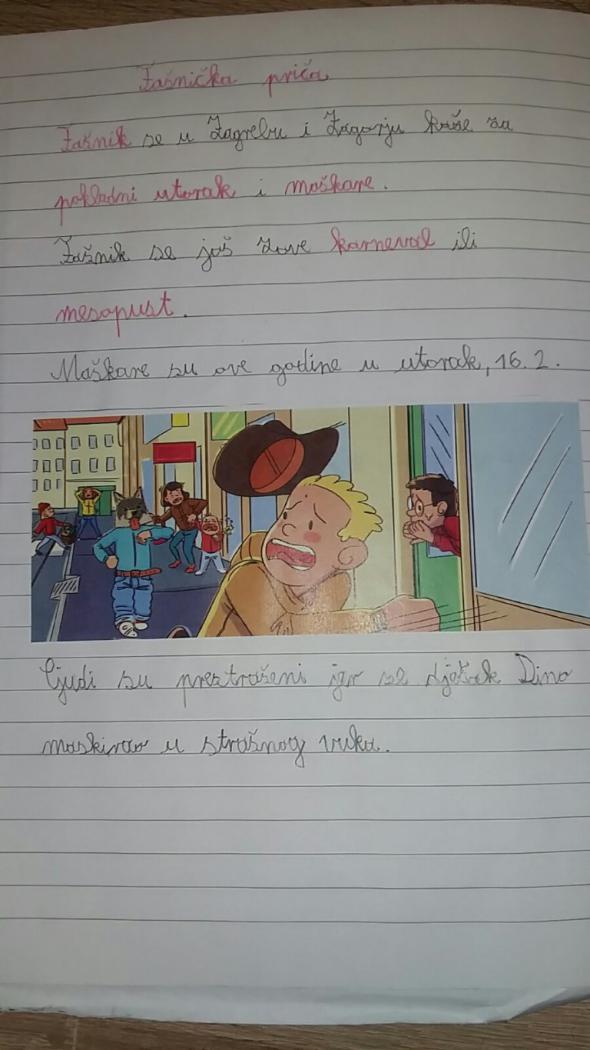 Fašnička priča
Fašnik se u Zagrebu i Zagorju kaže za
pokladni utorak i maškare.
Fašnik se još zove karneval ili
mesopust.
Maškare su ove godine u utorak, 16. 2.
Ljudi su prestrašeni jer se dječak Dino
maskirao u strašnog vuka.